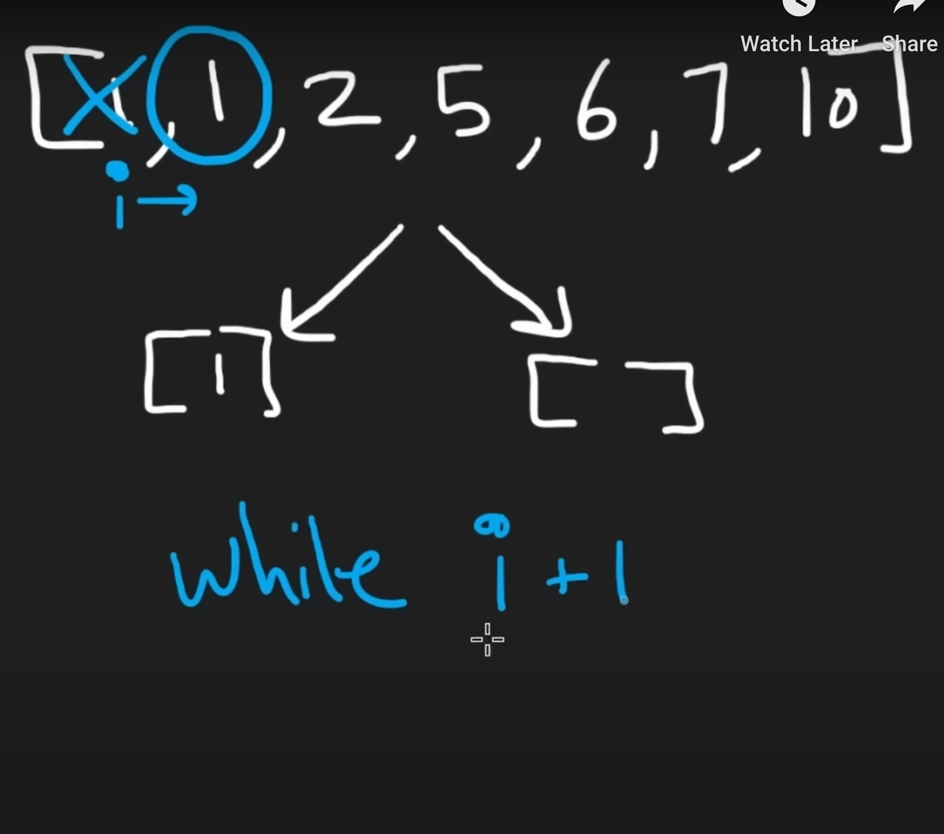 Watch Later Share
[1, 1, 2, 5, 6, 7, 10]
i →
[1] [ ]
while i + 1